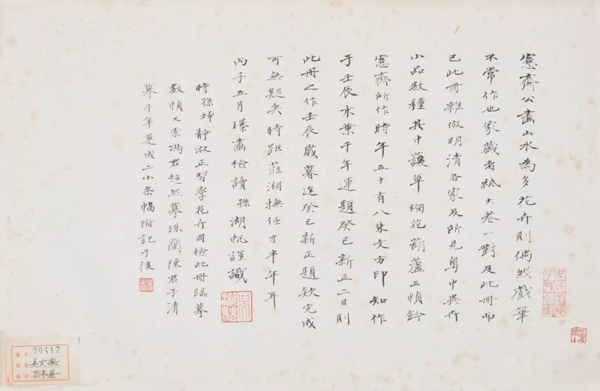 愙齋公畫山水為多花卉則偶然戲筆
不常作也家藏者祇大卷一對及此冊而
已此冊雜倣明清各家及所見粵中異卉
小品數種其中護草梔花葫蘆三幀鈐
愙齋所作時年五十有八朱文方印知作
于壬辰水葉千年運題癸巳新正二日則
此冊之作壬辰歲暮迄癸巳新正題款完成
可無疑矣時距莅湘撫任才半年耳
丙子五月曝畫檢讀孫湖帆謹識
時孫婦靜淑正習學花卉因檢此冊臨摹
數幀又索馮君超然摹珠蘭陳君子清
摹千年運成二小条幅附記于後
00417